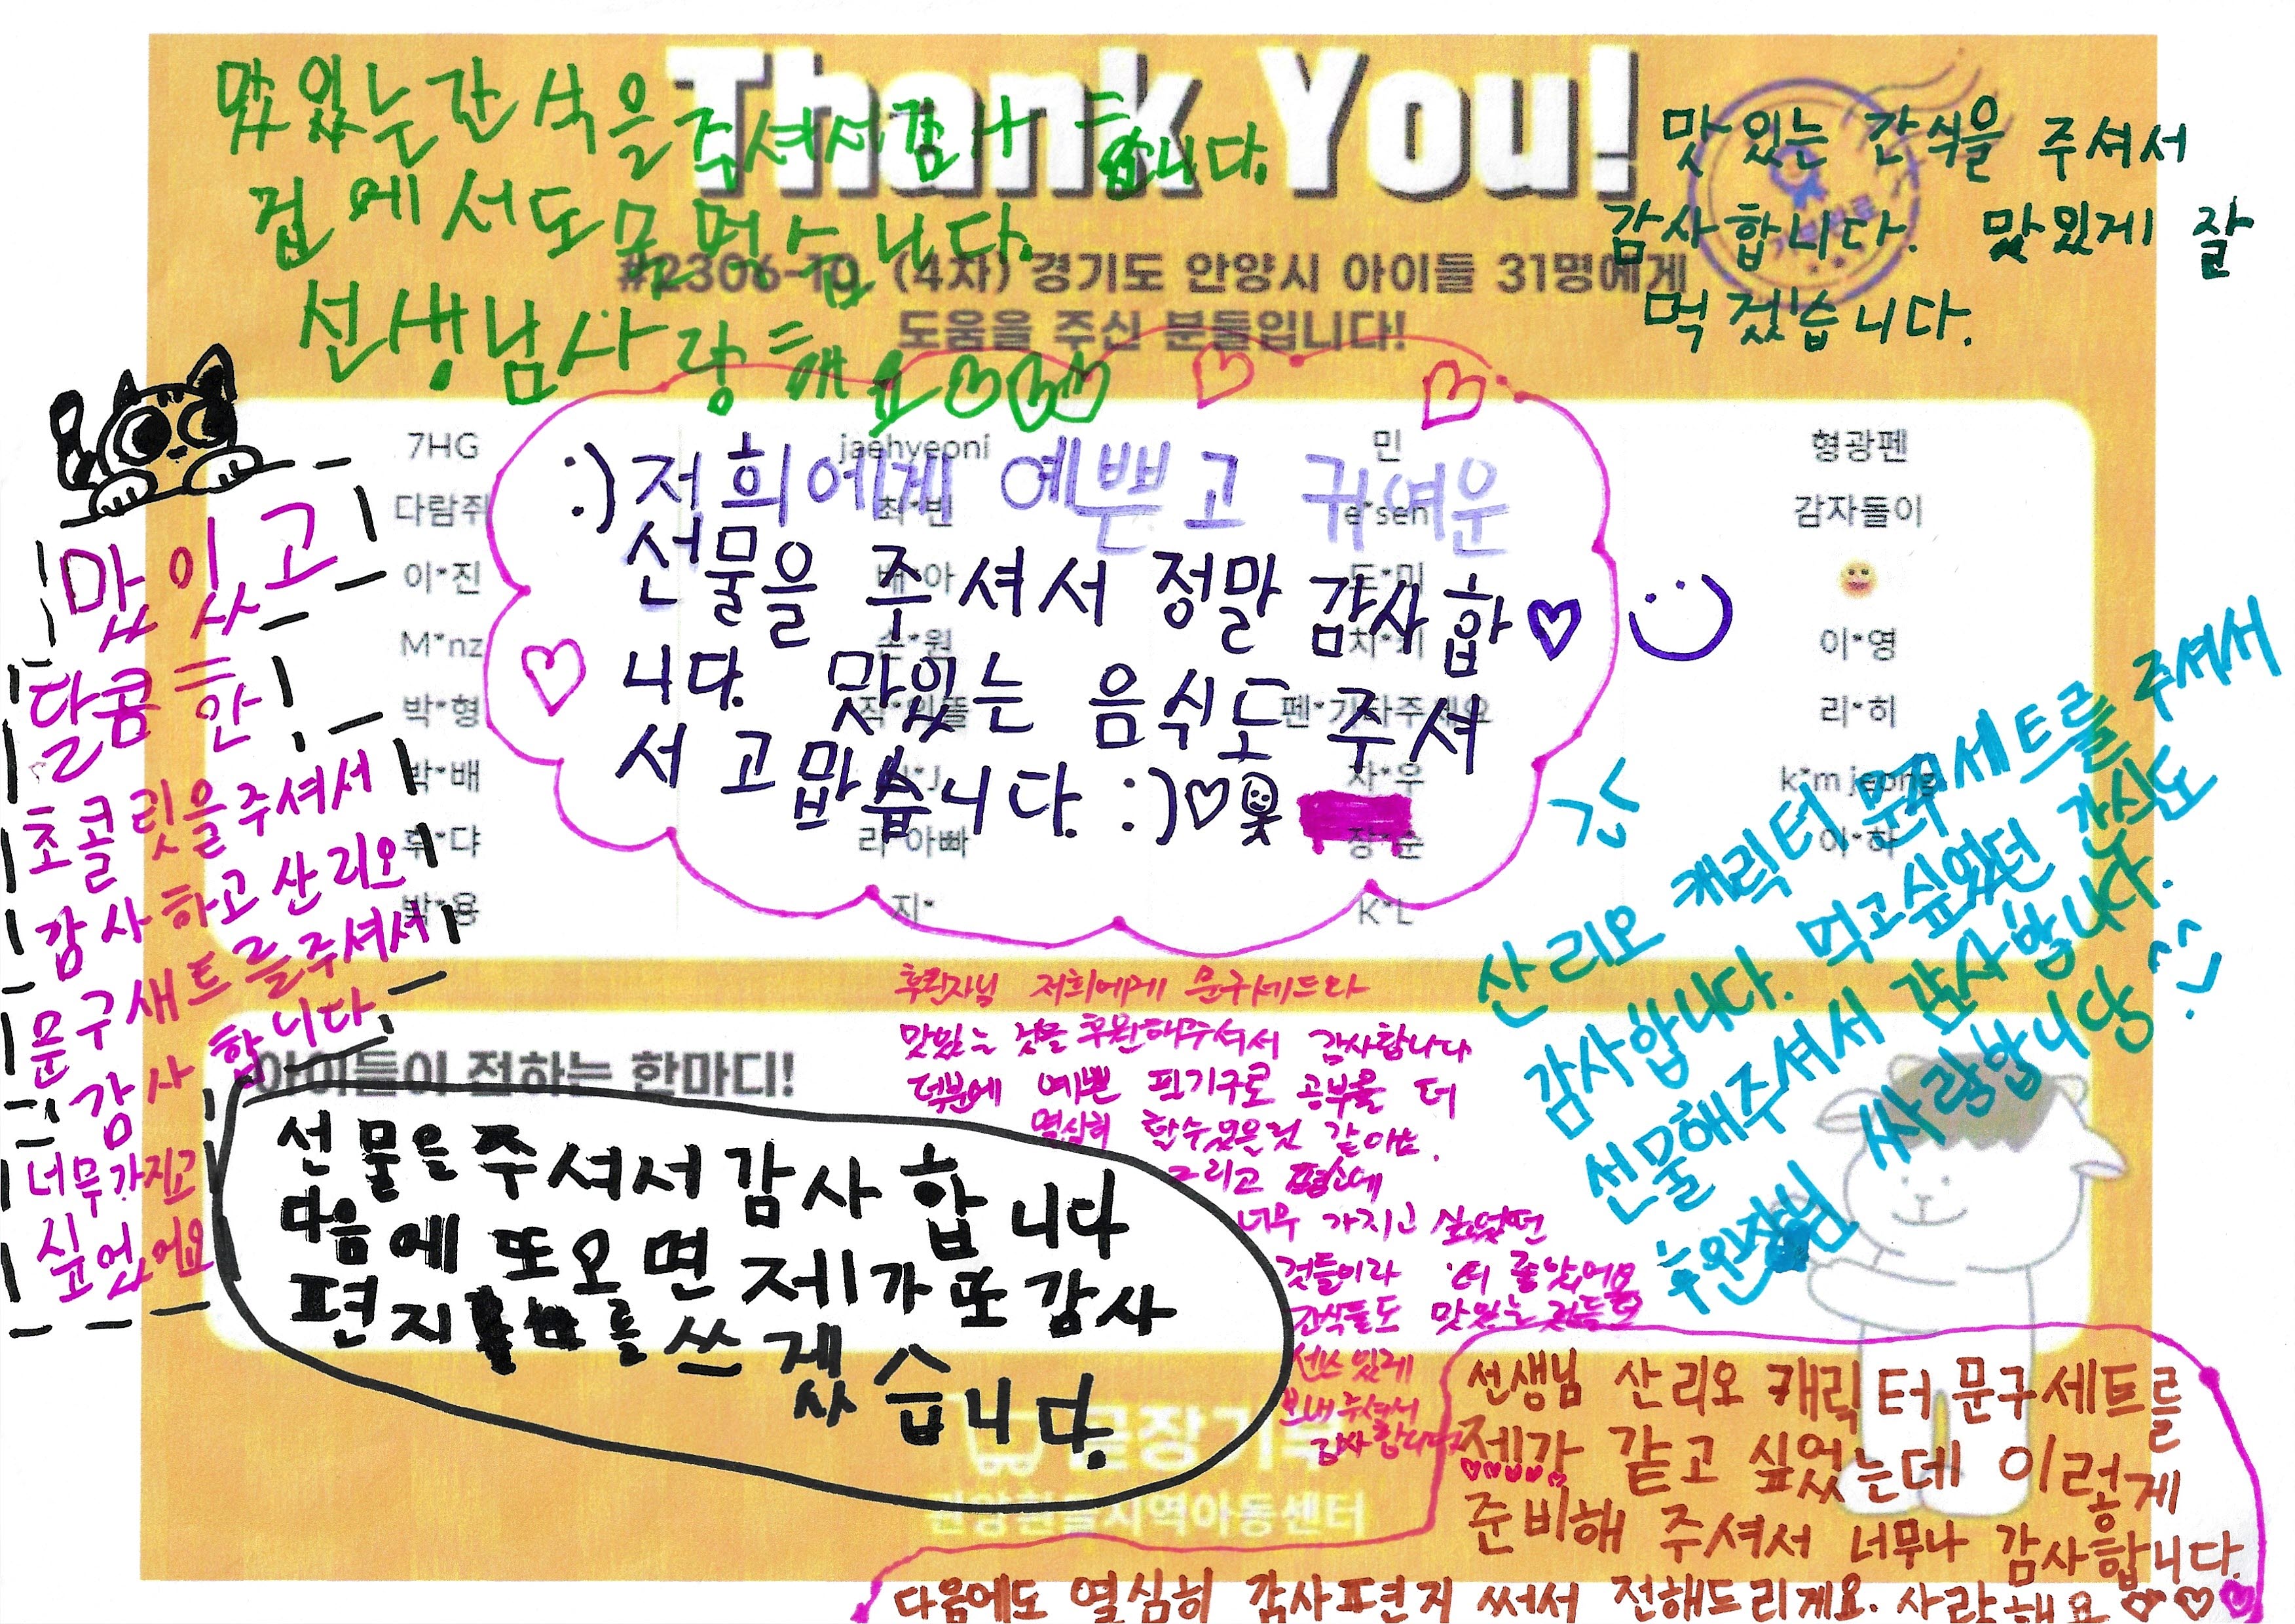 Thank You!
#2306-10 (4차) 경기도 안양시 아이들 31명에게
도움을 주신 분들입니다!
맜있는간식을주셔서감사합니다.
겁에서도 못먹습니다.
선생님사랑해요
맛있는 간식을 주셔서
감사합니다. 맜있게 잘
먹겠습니다.
7HG
jaehyeoni
민
형광펜
다람쥐
최*빈
e*seh
감자돌이
이*진
M*nz
이*영
박*형
리*히
박*배
k*m jeong
이*하
박*용
지*
K*L
:) 저희에게 예쁘고 귀여운
선물을 주셔서 정말 감사합
니다. 맜있는 음식도 주셔
서 고맙습니다. :)
맜있고
달콤한
초콜릿을주셔서
감사하고산리오
문구새트를주셔서
감사합니다
너무가지고
싶었어요
산리오 캐릭터 문구세트를 주셔서
감사합니다. 먹고싶었던 간식도
선물해주셔서 감사합니다.
후원자님 싸랑합니당 ^^
후원자님 저희에게 문구세트와
맛있는 것을 후원해주셔서 감사합니다
덕분에 예쁜 필기구로 공부을 더
열심히 할수있을것 같아요.
그리고 평소에
너무 가지고 싶었던
것들이라 더 좋았어요
간식들도 맛있는 것들로
센스있게
보내주셔서
감사합니다
아이들이 전하는 한마디!
선물을주셔서감사합니다
다음에 또오면 제가또감사
편지를쓰겠습니다.
선생님 산리오 캐릭터 문구세트를
젬가 갇고 싶었는데 이렇게
준비해 주셔서 너무나 감사합니다.
다음에도 열심히 감사편지 써서 전해드리게요. 사랑해요
지역아동센터